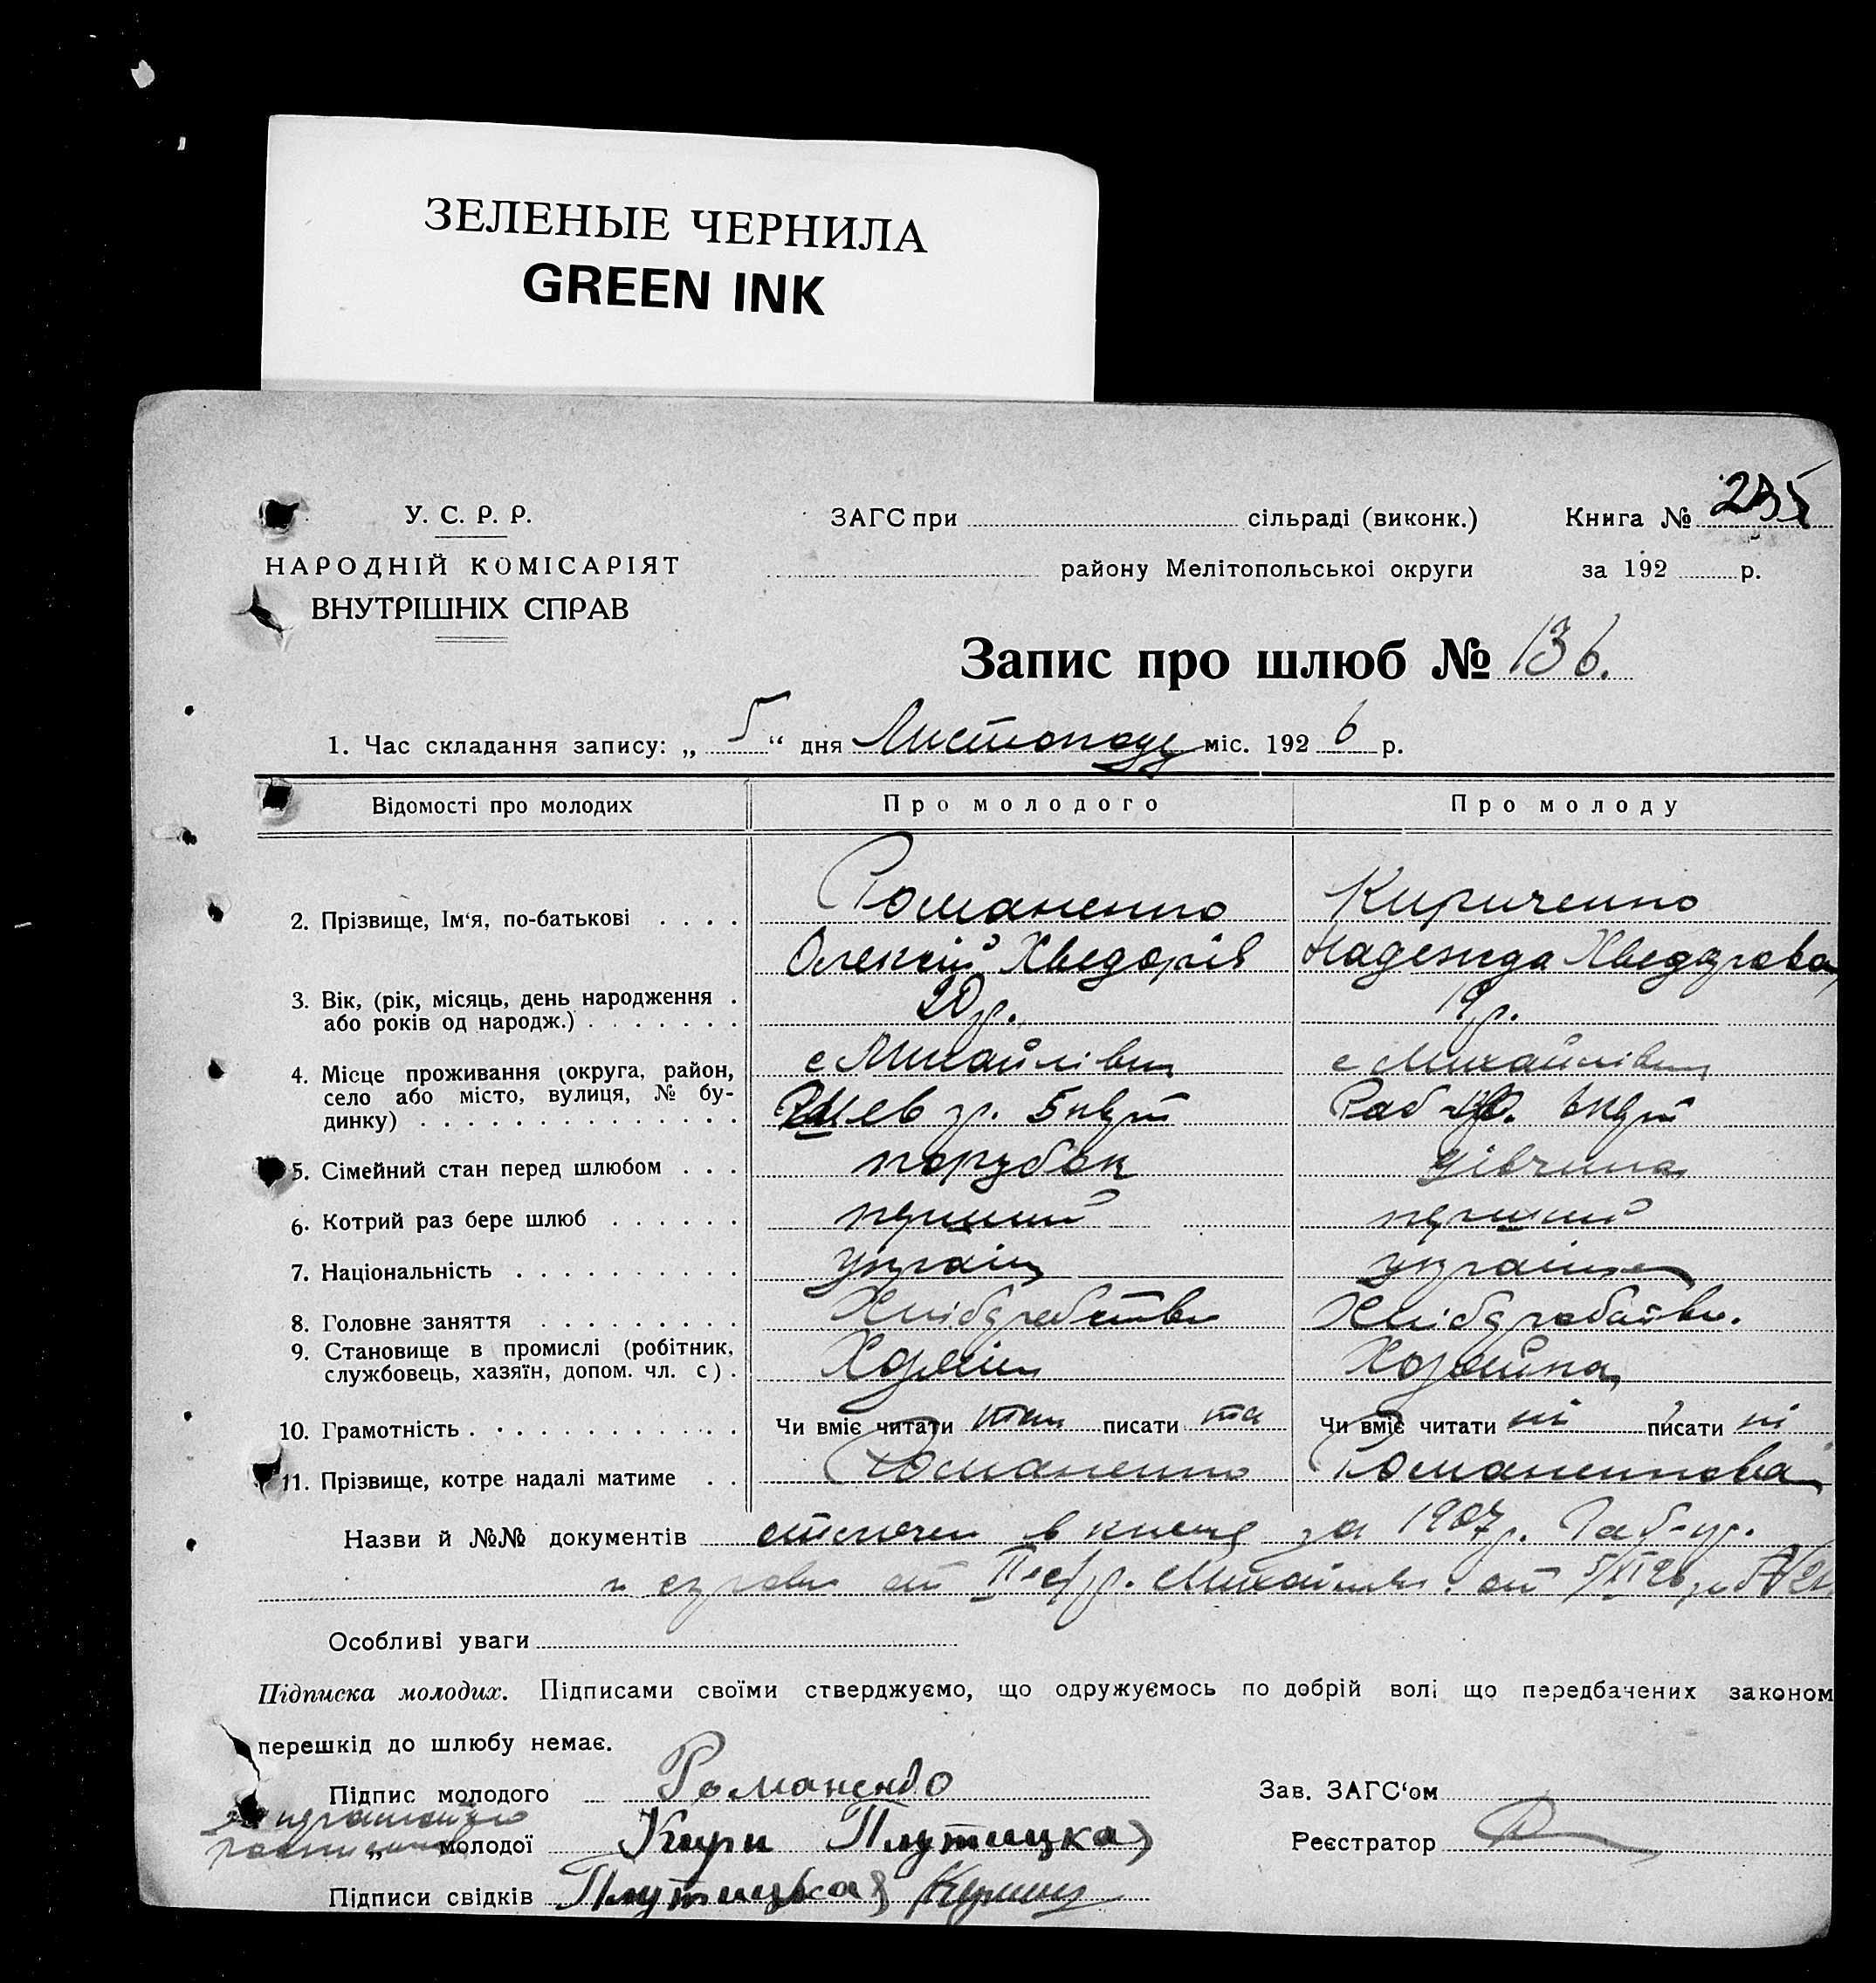 ЗЕЛЕНЫЕ ЧЕРНИЛА
GREEN INK
У. С. Р. Р.
НАРОДНІЙ КОМІСАРІЯТ
ВНУТРІШНІХ СПРАВ
ЗАГС при сільраді (виконк.)
району Мелітопольської округи
Книга № 235
за 192 р.
Запис про шлюб № 136.
1. Час складання запису: „ 5 “ дня Листопаду міс. 192 6 р.
Відомості про молодих Про молодого Про молоду
2. Прізвище, Ім‘я, по-батькові . . . . Романенко Кириченко
Олексій Хведорів Надежда Хведорова
3. Вік, (рік, місяць, день народження . 20 р. 19 р.
або років од народж.) . . . . . . .
4. Місце проживання (округа, район, с Михайлівка с Михайлівка
село або місто, вулиця, № бу-
динку) . . . . . . . . . . . . . . гр. 5 кварт Раб кварт
5. Сімейний стан перед шлюбом . . . парубок дівчина
6. Котрий раз бере шлюб . . . . . . перший перший
7. Національність . . . . . . . . . . україн україн
8. Головне заняття . . . . . . . . . Хлібаробство Хлібаробство.
9. Становище в промислі (робітник, Хозяін Хозяйка
службовець, хазяїн, допом. чл. с) .
10. Грамотність . . . . . . . . . . . . Чи вміє читати так писати та Чи вміє читати ні писати ні
11. Прізвище, котре надалі матиме . . Романенко Романенкова
Назви й №№ документів в книзі за 1907 р.
от 5/XI 26
Особливі уваги
Підписка молодих. Підписами своїми стверджуємо, що одружуємось по добрій волі що передбачених законом
перешкід до шлюбу немає.
Підпис молодого Романенко
Зав. ЗАГС‘ом
„ молодої Кири Плутицка
Реєстратор
Підписи свідків Плутицька